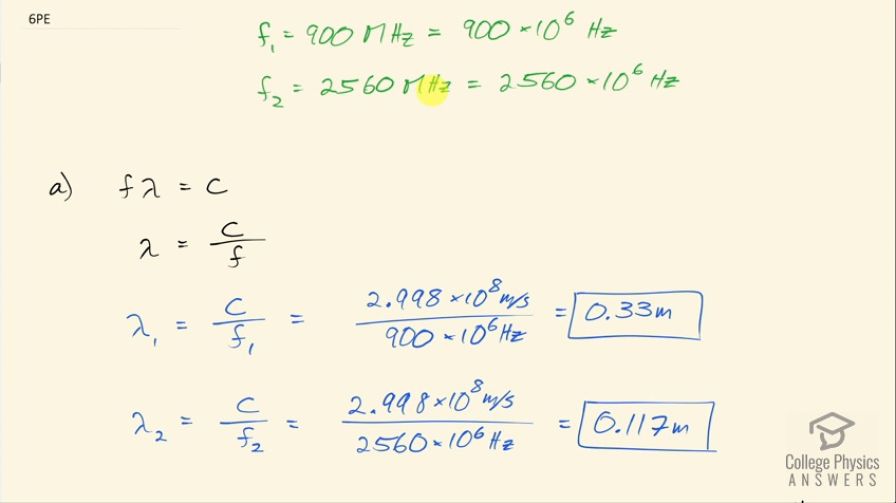 6PE
f₁ = 900 MHz = 900 × 10⁶ Hz
f₂ = 2560 MHz = 2560 × 10⁶ Hz
a) fλ = c
λ = c/f
λ₁ = c/f₁ = 2.998 × 10⁸ m/s / 900 × 10⁶ Hz = 0.33 m
λ₂ = c/f₂ = 2.998 × 10⁸ m/s / 2560 × 10⁶ Hz = 0.117 m
College Physics
ANSWERS